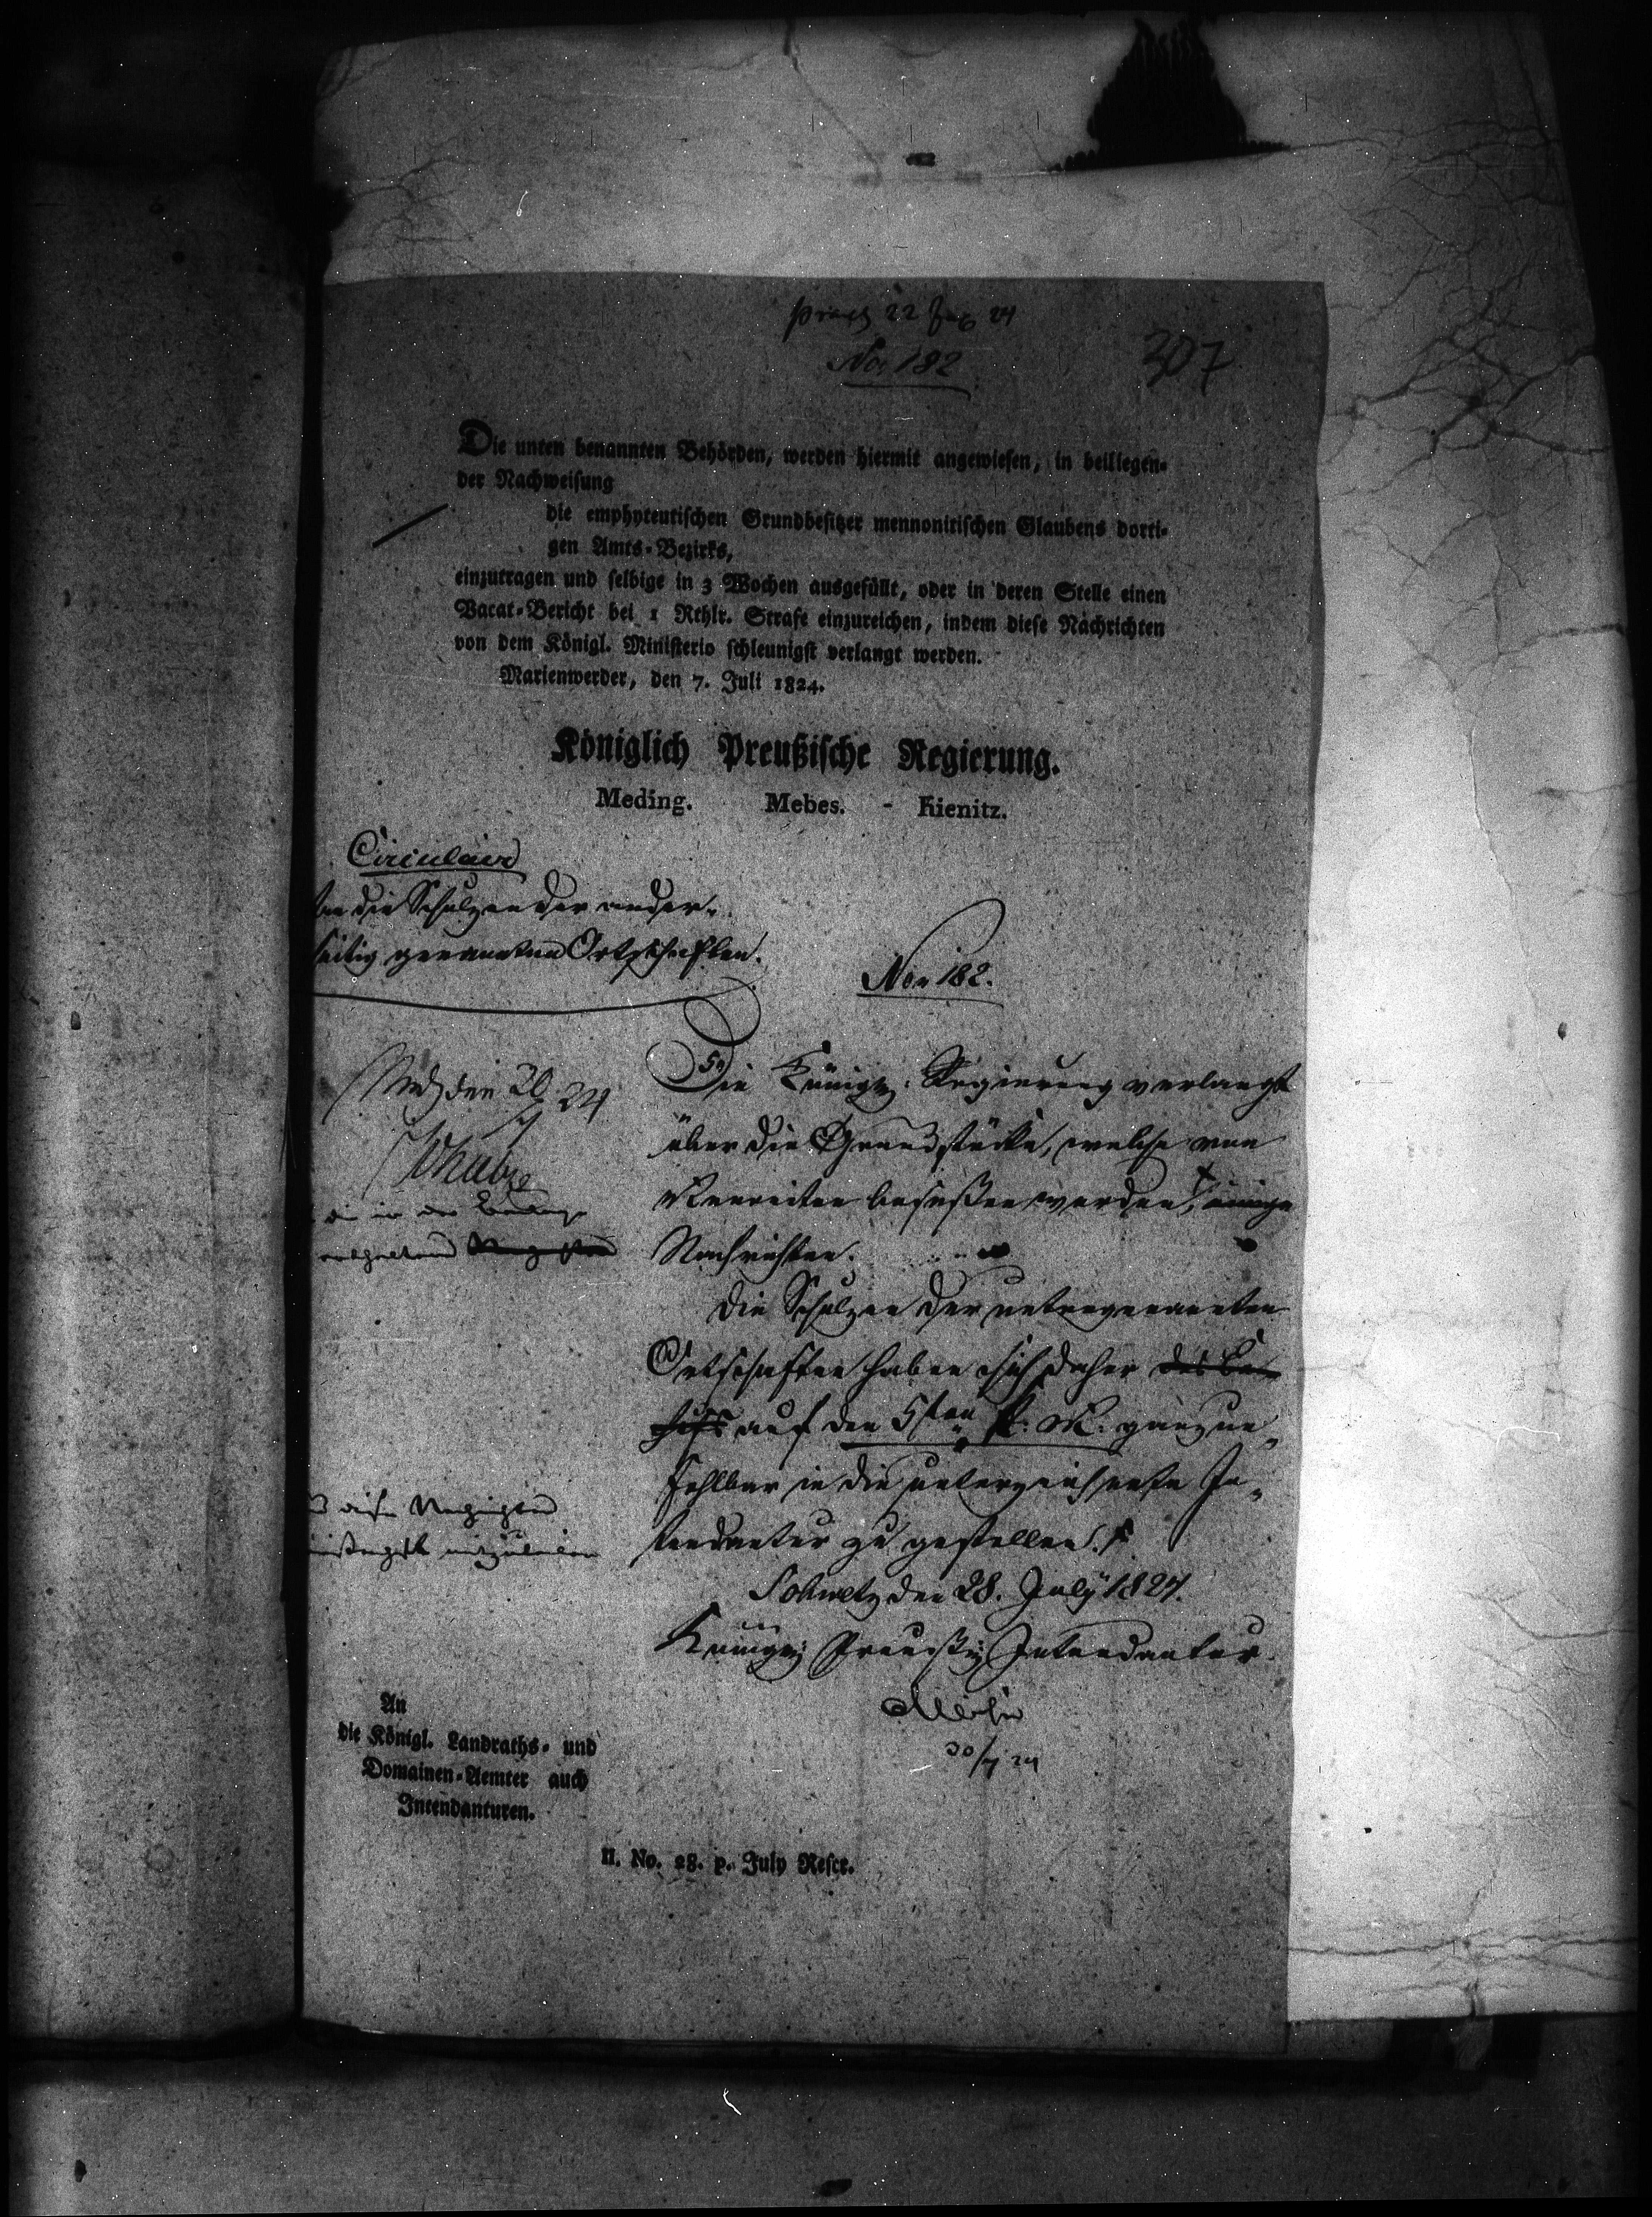 22 24
No. 182
307
Die unten benannten Behörden, werden hiermit angewiesen, in beiliegen-
der Nachweisung
die emphyteutischen Grundbesitzer mennonitischen Glaubens dorti-
gen Amts-Bezirks,
einzutragen und selbige in 3 Wochen ausgefüllt, oder in deren Stelle einen
Vacat-Bericht bei 1 Rthlr. Strafe einzureichen, indem diese Nachrichten
von dem Königl. Ministerio schleunigst verlangt werden.
Marienwerder, den 7. Juli 1824.
Königlich Preußische Regierung.
Meding. Mebes. - Kienitz.
Circulaire
an die Schulzen der ander-
seitig genannten Ortschaften.
No 182.
Die Königl: Regierung verlangt
über die Grundstücke, welche von
Menoniten besessen werden, einige
Nachrichten.
Die Schulzen der untengenannten
Ortschaften haben sich daher
auf den 5ten k: M: ganz un-
fehlbar in die unterzeichnete In-
tendantur zu gestellen.
Schwetz den 28. July 1824.
Königl: Preußische Intendantur.
30/7 24
den 24
die in der
enthaltend
diese Nachrichten
mitzutheilen
An
die Königl. Landraths- und
Domainen-Aemter auch
Intendanturen.
II. No. 28. p. July Rescr.